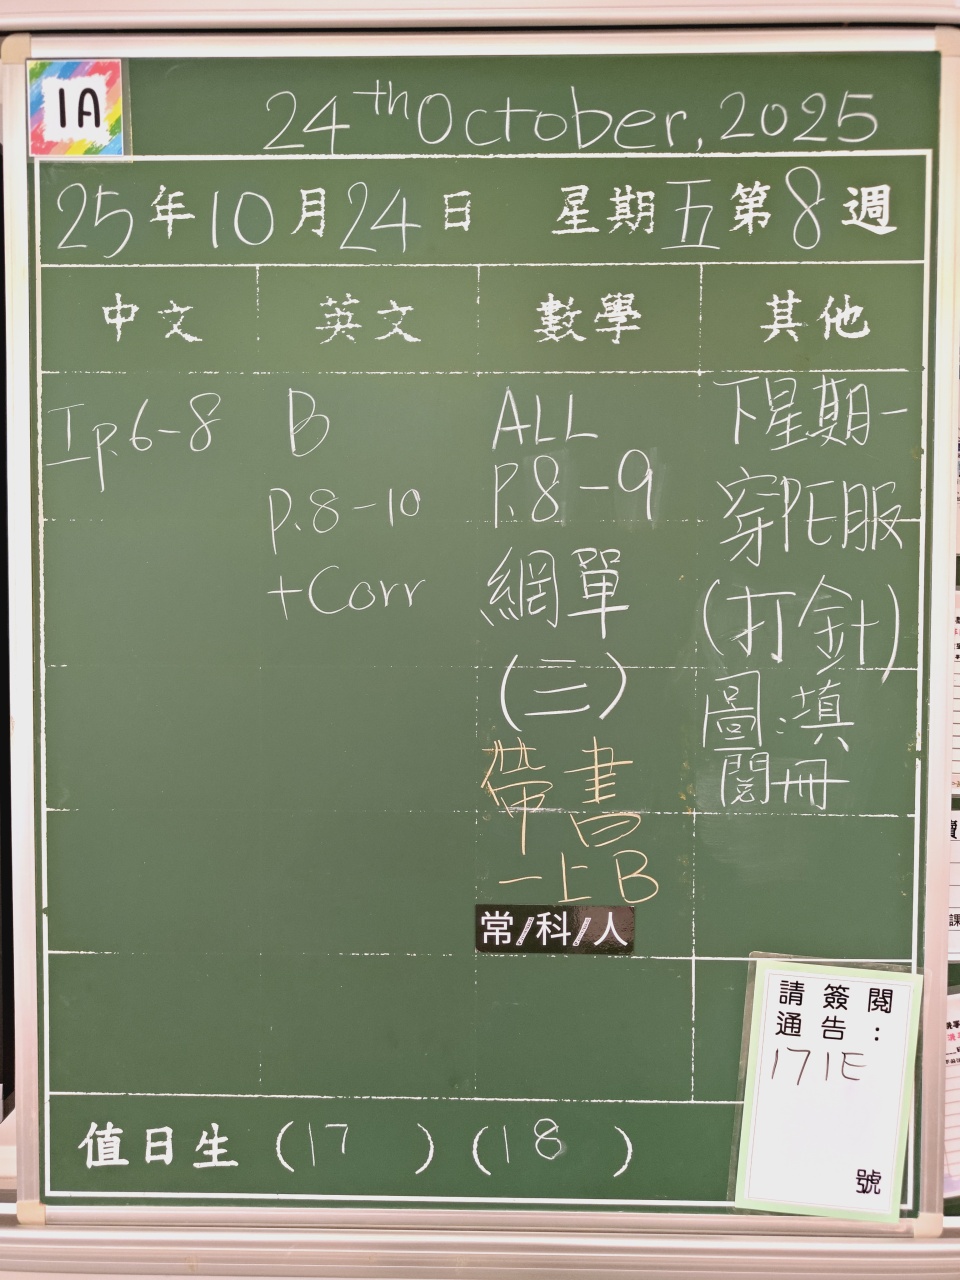 1A
24th October, 2025
25年10月24日 星期五第8週
中文
英文
數學
其他
工p.6-8
B
p.8-10
+Corr
ALL
P.8-9
網單
(三)
帶書
一上B
常/科/人
下星期一
穿PE服
(打針)
圖:填
閱冊
請簽閱
通告:
171E
號
值日生 (17) (18)